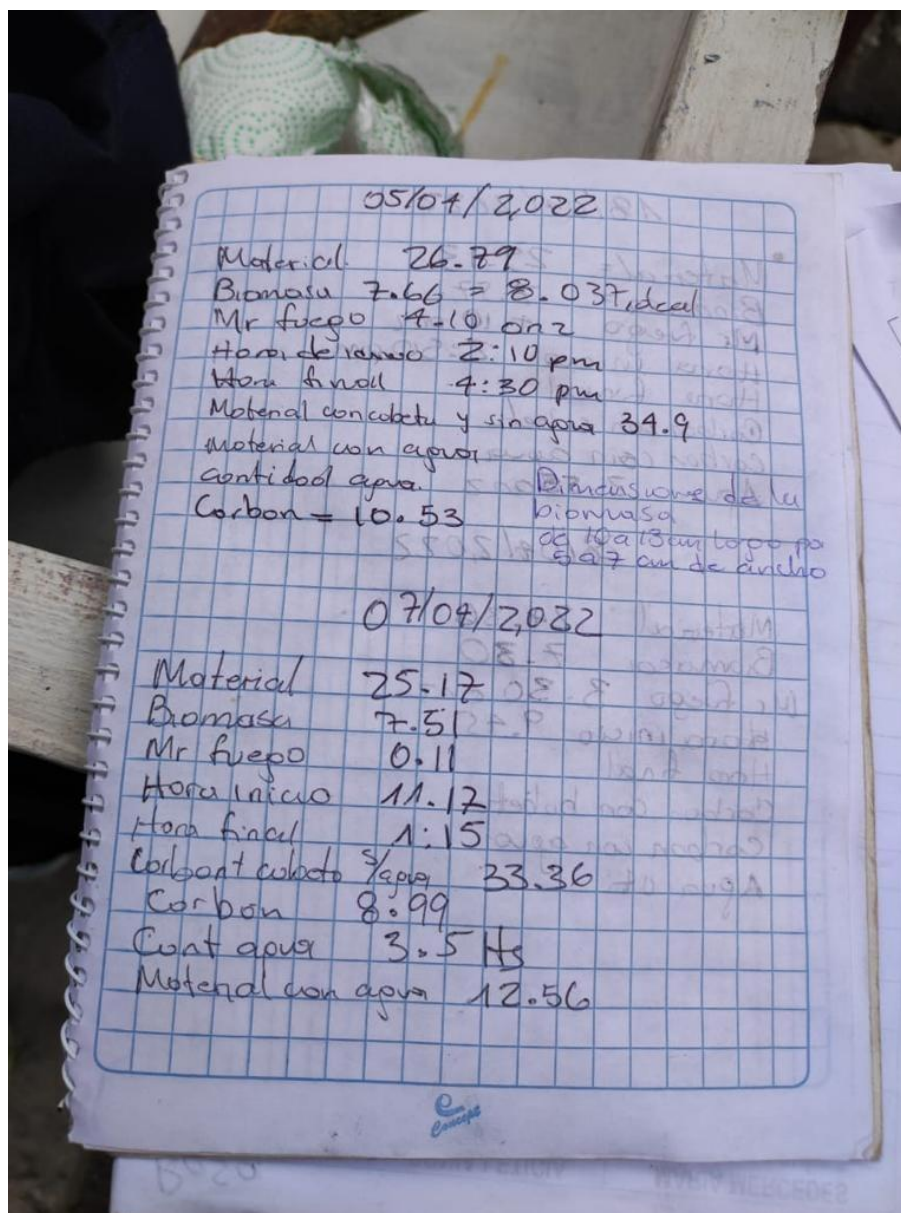 05/04/2,022
Material 26.79
Biomasa 7.66 = 8.037 ideal
Mr fuego 4.10 onz
Hora de 2:10 pm
Hora final 4:30 pm
Material con cubeta y sin agua 34.9
Material con agua
cantidad agua
Carbon = 10.53
Dimensione de la
biomasa
de 10 a 13 cm largo por
5 a 7 cm de ancho
07/04/2,022
Material 25.17
Biomasa 7.51
Mr fuego 0.11
Hora inicio 11.17
Hora final 1:15
Carbon t cubeta s/agua 33.36
Carbon 8.99
Cant agua 3.5 lts
Material con agua 12.56
Concept